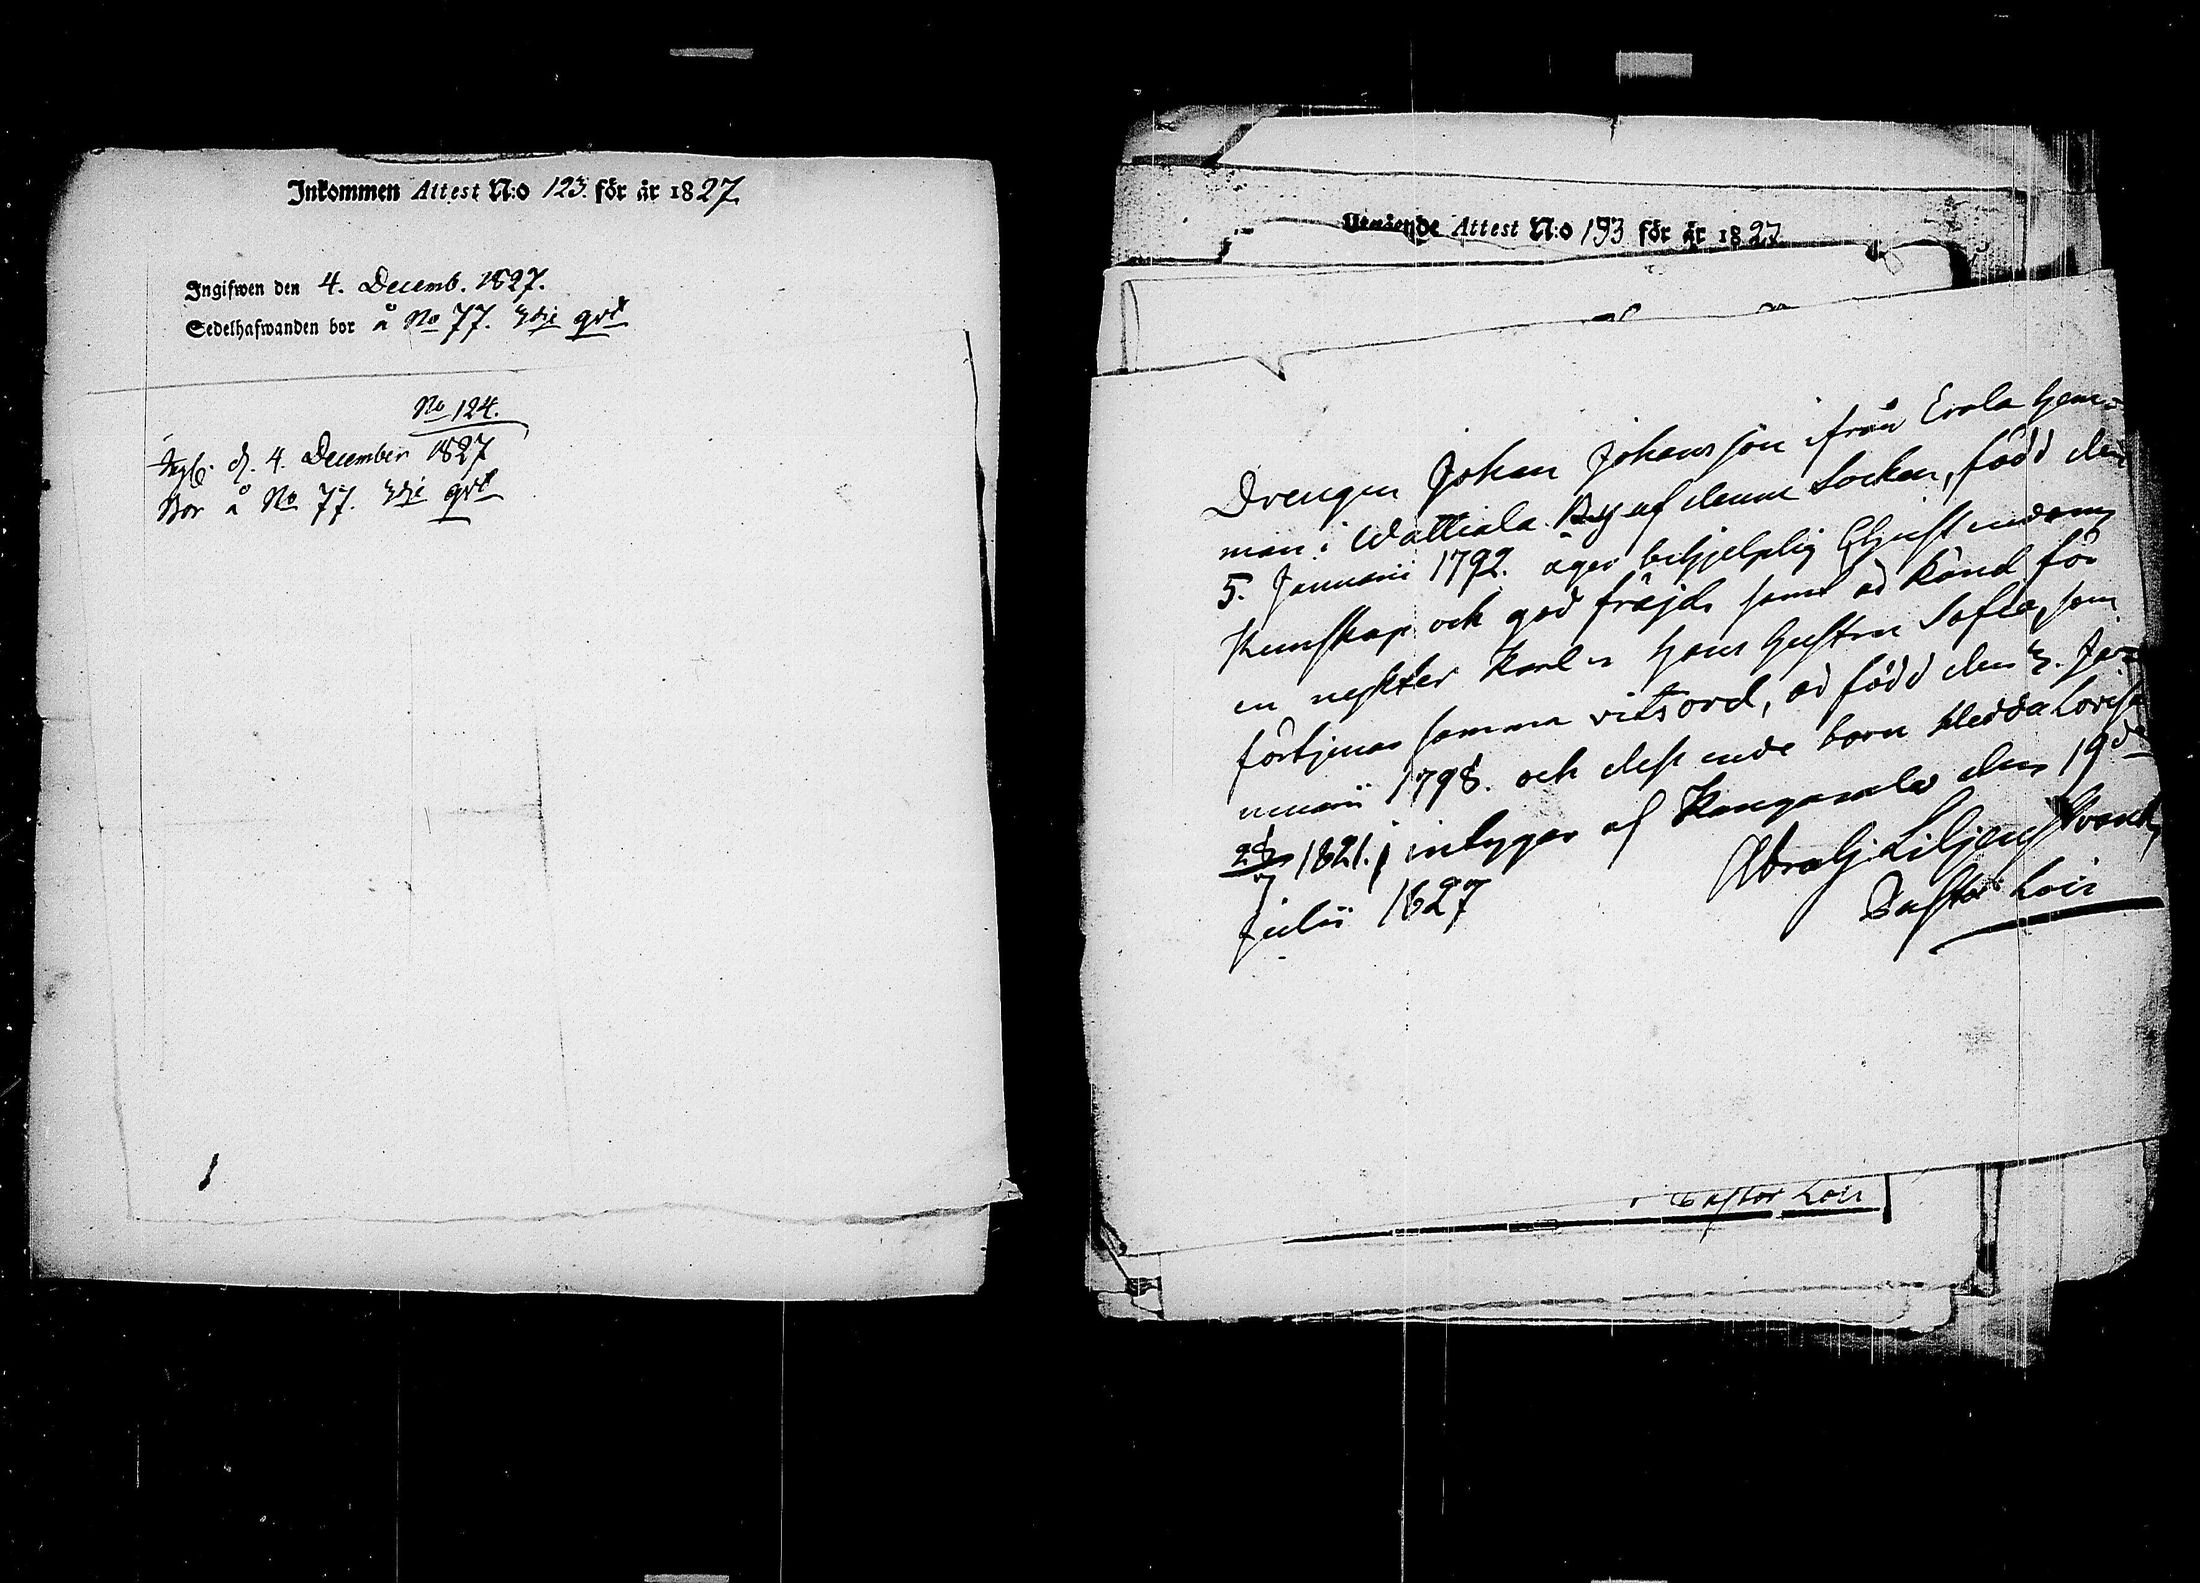 Inkommen Attest N:o 123. för år 1827.
Ingifwen den 4. Decemb. 1827.
Sedelhafwanden bor å No 77. 3die qrt
No 124.
Ingf. d. 4. December 1827
Bor å No 77. 3die qrt
Attest N:o 193 för år 1827
Drengen Johan Johansson ifrån Erola hem=
man i Wättiala By af denne Socken, född den
5. Januarii 1792. äger behjelplig Christendoms
Kunskap och god fräjd samt är känd för
en nykter karl; hans hustru Sofia, som
förtjenar samma vitsord, är född den 3. Ja=
nuarii 1798. och dess enda barn Hedda Lovisa
1821. intygar af Kangasala den 19de
Julii 1827
Abrah. Liljenstrand,
Pastor Loci
Pastor Loci